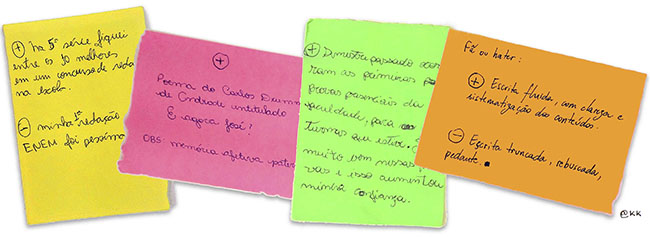 ⊕ na 5ª série fiquei
entre os 10 melhores
em um concurso de reda
na escola.
⊖ minha 1ª redação
ENEM foi péssima
⊕
Poema do Carlos Drumm
de Andrade intitulado
E agora José?
OBS: memória afetiva pater
⊕ Dimestre passado ocor
ram as primeiras
provas presenciais da
faculdade, para
turmas que estor.
muito bem nessas,
vas e isso aumentou
minha confiança.
Fã ou hater:
⊕ Escrita fluida, com clareza e
sistematização dos conteúdos.
⊖ Escrita truncada, rebuscada,
pedante.
@KK